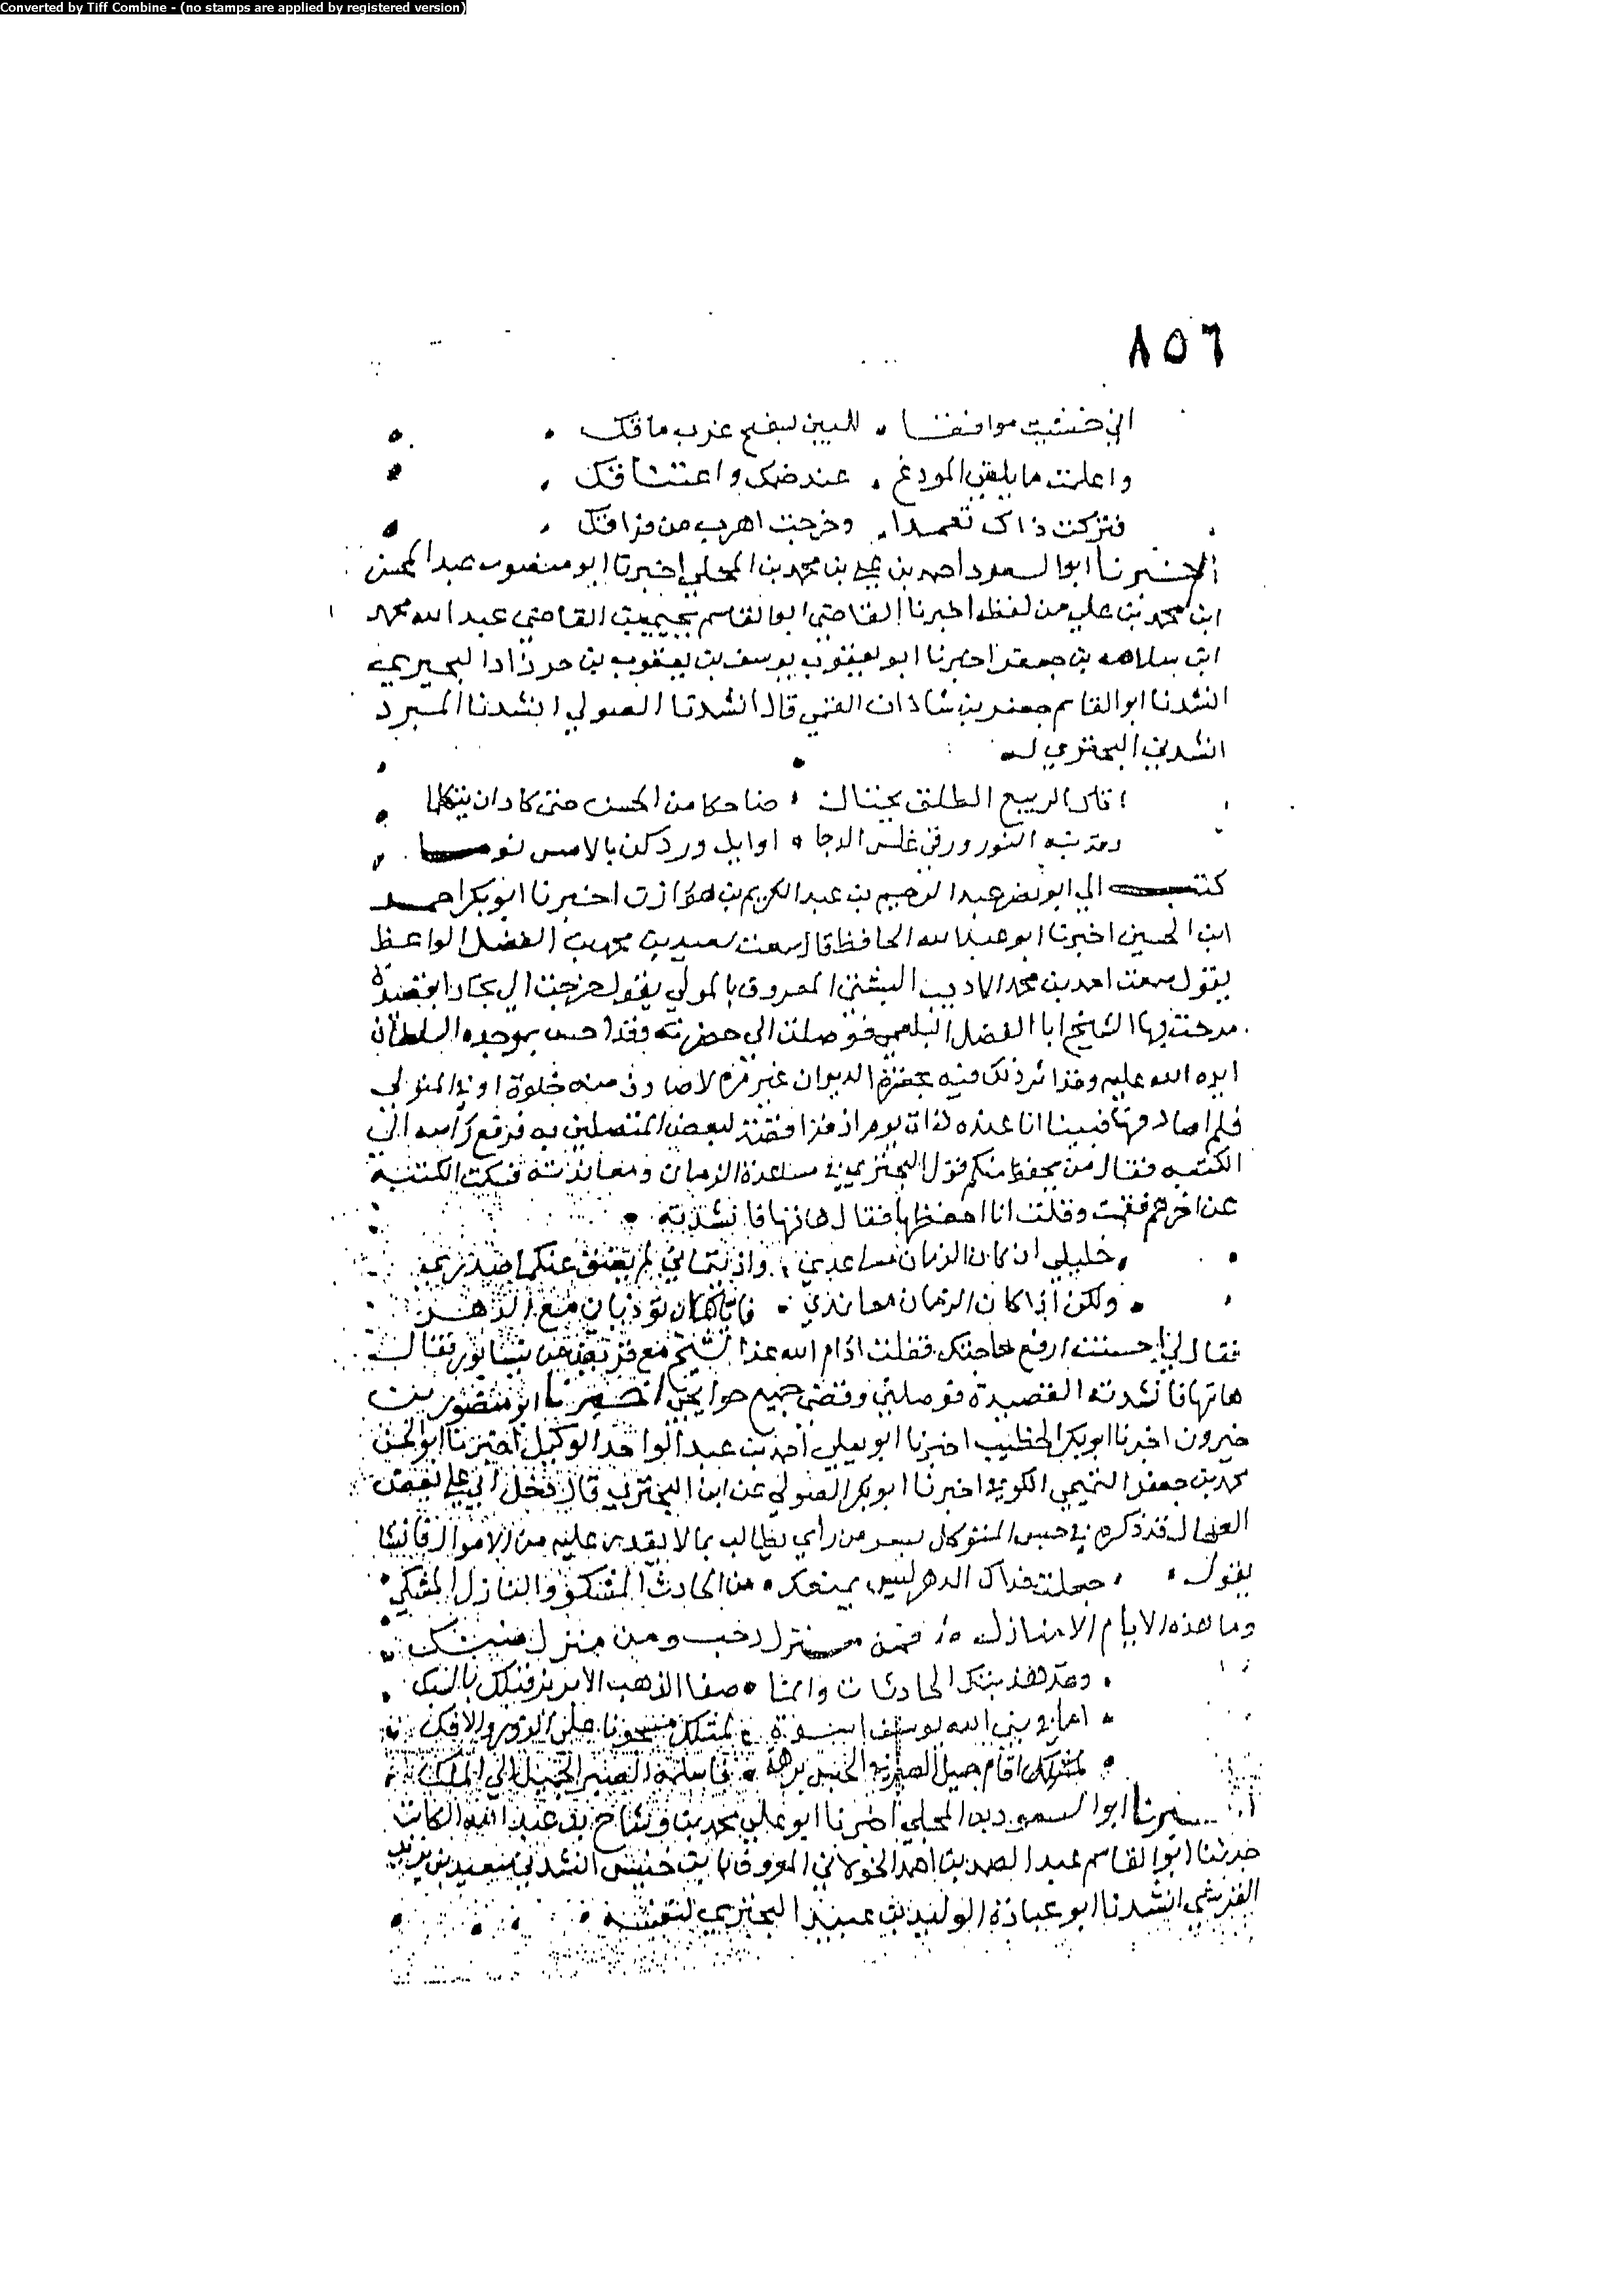 Converted by Tiff Combine - (no stamps are applied by registered version)
٨٥٦
اني خشيت مواقفا . للبين تسفح غرب ماقك
وعلمت ما يلقى المودع . عند ضمك واعتناقك
فتركت ذاك تعمدا . وخرجت اهرب من فراقك
اخبرنا ابو السعود احمد بن علي بن محمد بن المجلي اخبرنا ابو منصور عبد المحسن
ابن محمد بن علي من لفظه اخبرنا القاضي ابو القاسم بن القاضي عبد الله محمد
ابن سلامه بن جعفر اخبرنا ابو يعقوب يوسف بن يعقوب بن خرزاد النجيرمي
انشدنا ابو القاسم جعفر بن شاذان القمي قال انشدنا الصولي انشدنا المبرد
انشدني البحتري له
اتاك الربيع الطلق يختال ضاحكا من الحسن حتى كاد ان يتكلما
وقد نبه النورور في غلس الدجا اوايل ورد كن بالامس نوما
كتب الي ابو نصر عبد الرحيم بن عبد الكريم بن هوازن اخبرنا ابو بكر احمد
ابن الحسين اخبرنا ابو عبد الله الحافظ قال سمعت سعيد بن محمد بن الفضل الواعظ
يقول سمعت احمد بن محمد الاديب البشتي المعروف بالمولي يقول خرجت الي بخارا بقصيدة
مدحت بها الشيخ ابا الفضل البلعمي فوصلت الى حضرته وقد احس بموجدة السلطان
ايده الله عليه وقد اثر ذلك فيه بحضرة الديوان غير مرة لاصادف منه خلوة
فلم اصادفها فبينا انا عنده ذات يوم اذ لبعض المتصلين به فرفع راسه الى
الكتبه فقال من يحفظ منكم قول البحتري في مساعدة الزمان ومعاندته فسكت الكتبه
عن اخرهم فقمت وقلت انا احفظها فقال هاتها فانشدته
خليلي ان كان الزمان مساعدي . لم يضق عنكما صدري
ولكن اذا كان الزمان معاندي . فاياكما ان تؤذياني مع الدهر
فقال لي احسنت ارفع حاجتك فقلت ادام الله عز الشيخ مع من نيسابور فقال
هاتها فانشدته القصيدة فوصلني وقضى جميع حوايجي اخبرنا ابو منصور بن
خيرون اخبرنا ابو بكر الخطيب اخبرنا ابو يعلي احمد بن عبد الواحد الوكيل اخبرنا ابو الحسن
محمد بن جعفر التميمي الكوفي اخبرنا ابو بكر الصولي عن ابن البحتري قال دخل ابي علي بعض
العمال قد ذكره في حبس المتوكل بسر من راي يطالب بما لا يقدر عليه من الاموال فانشا
يقول . جعلت فداك الدهر ليس بمنفك . من الحادث المشكو والنازل المشكي
وما هذه الايام الا منازل . فمن منزل رحب ومن منزل ضنك
وقد هذبتك الحادثات وانما . صفا الذهب الابريز قبلك بالسبك
اما في نبي الله يوسف اسوة . لمثلك مسجونا على الزور والافك
اقام جميل الصبر في الحبس برهة . فاسلمه الصبر الجميل الى الملك
اخبرنا ابو السعود بن المجلي اخبرنا ابو علي محمد بن وشاح بن عبد الله الكاتب
حدثنا ابو القاسم عبد الصمد بن احمد الخولاني المعروف بابن خنبش انشدني سعيد بن يزيد
القرشي انشدنا ابو عبادة الوليد بن عبيد البحتري لنفسه